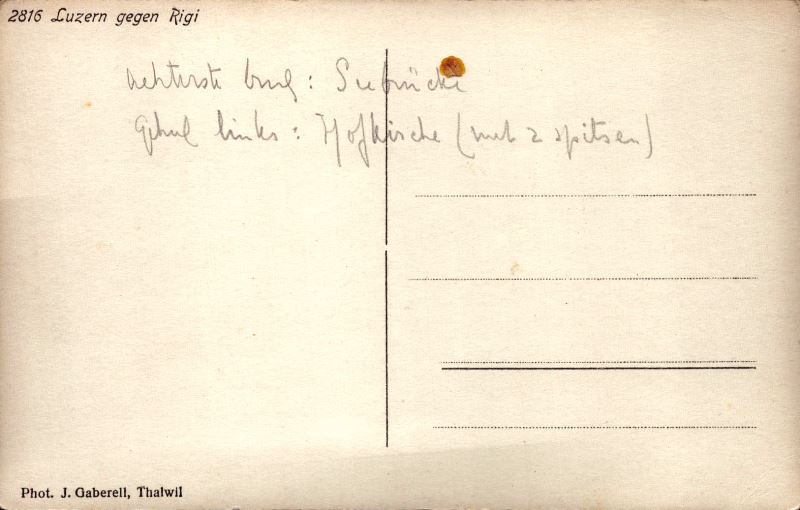 2816 Luzern gegen Rigi
achterste brug: Seebrücke
Geheel links: Hofkirche (met 2 spitsen)
Phot. J. Gaberell, Thalwil